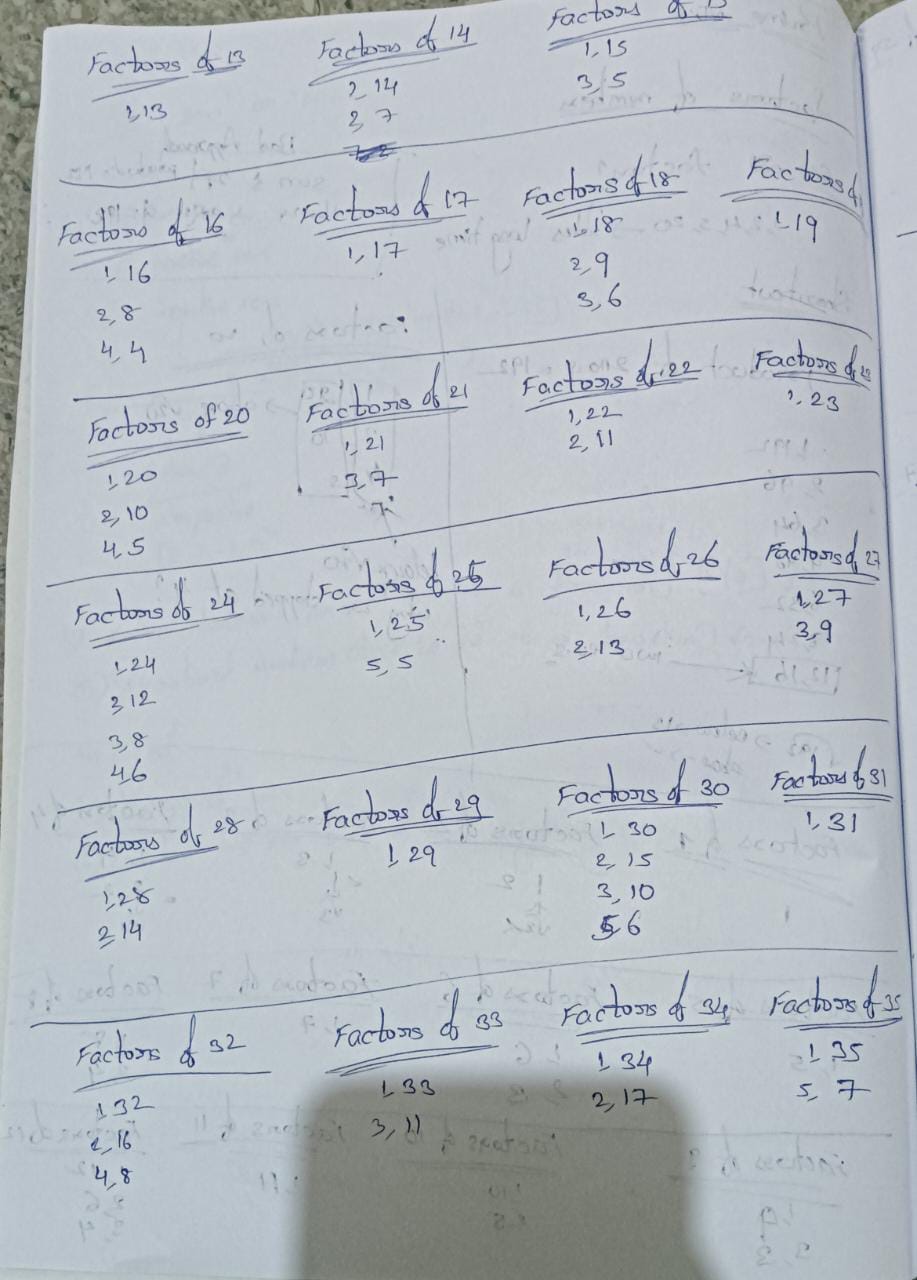 Factors of 13
1,13
Factors of 14
1,14
2,7
Factors of 15
1,15
3,5
Factors of 16
1,16
2,8
4,4
Factors of 17
1,17
Factors of 18
1,18
2,9
3,6
Factors of
1,19
Factors of 20
1,20
2,10
4,5
Factors of 21
1,21
3,7
Factors of 22
1,22
2,11
Factors of 23
1,23
Factors of 24
1,24
2,12
3,8
4,6
Factors of 25
1,25
5,5
Factors of 26
1,26
2,13
Factors of 27
1,27
3,9
Factors of 28
1,28
2,14
Factors of 29
1,29
Factors of 30
1,30
2,15
3,10
5,6
Factors of 31
1,31
Factors of 32
1,32
2,16
4,8
Factors of 33
1,33
3,11
Factors of 34
1,34
2,17
Factors of 35
1,35
5,7